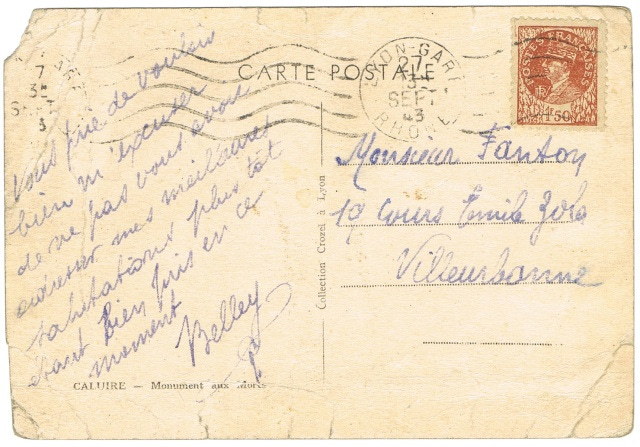 CARTE POSTALE
LYON-GARE
27
SEPT
43
RHONE
POSTES FRANÇAISES
1F50
Vous prie de vouloir
bien m'excuser
de ne pas vous avoir
adresser mes meilleures
salutations plus tôt
étant bien pris en ce
moment
Belley
Collection Crozel à Lyon
Monsieur Fanton
19 Cours Emile Zola
Villeurbanne
CALUIRE — Monument aux Morts